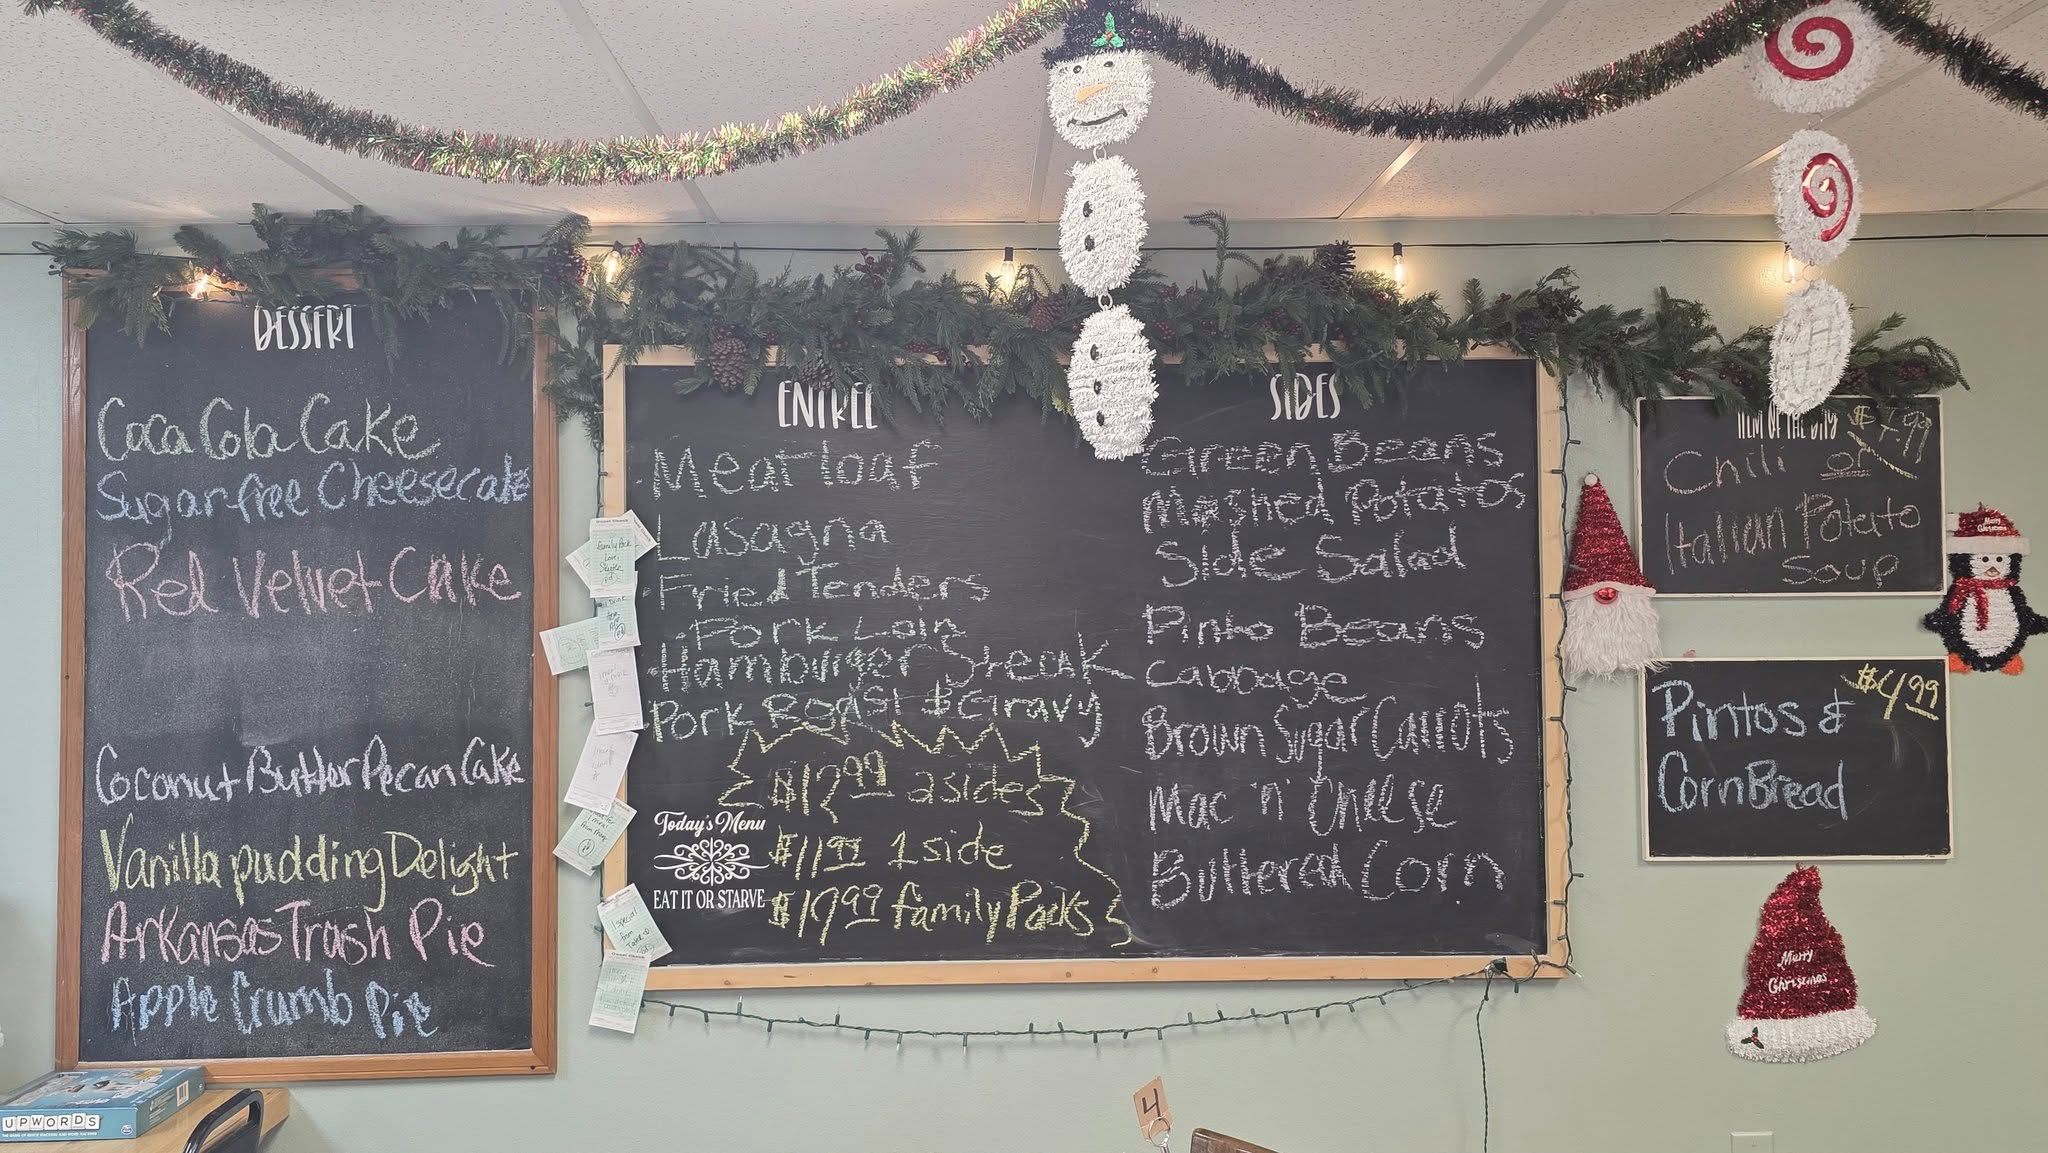 DESSERT
Coca Cola Cake
Sugar-free Cheesecake
Red Velvet Cake
Coconut Butter Pecan Cake
Vanilla pudding Delight
Arkansas Trash Pie
Apple Crumb Pie
UPWORDS
ENTREE
Meatloaf
Lasagna
Fried Tenders
Pork Loin
Hamburger Steak
Pork Roast & Gravy
$12.99 2 sides
$11.99 1 side
$19.99 family Packs
Today's Menu
EAT IT OR STARVE
SIDES
Green Beans
Mashed Potatos
Side Salad
Pinto Beans
Cabbage
Brown Sugar Carrots
Mac 'n' Cheese
Buttered Corn
ITEM OF THE DAY
Chili or
Italian Potato
Soup
Pintos &
CornBread
$4.99
Merry
Christmas
Merry
Christmas
family Pack
1 special
from
4